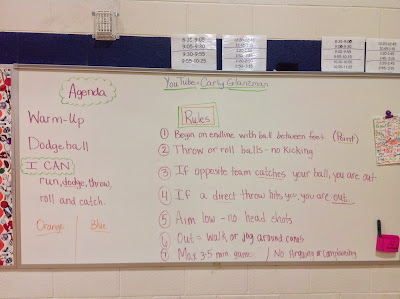 YouTube-Carly Glanzman
Agenda
Warm-Up
Dodgeball
I CAN
run, dodge, throw,
roll and catch.
Orange Blue
Rules
1 Begin on endline with ball between feet (Point)
2 Throw or roll balls - no kicking
3 If opposite team catches your ball, you are out
4 If a direct throw hits you, you are out.
5 Aim low - no head shots
6 Out = walk or jog around cones
7 Max 3-5 min. game / No Arguing or Complaining